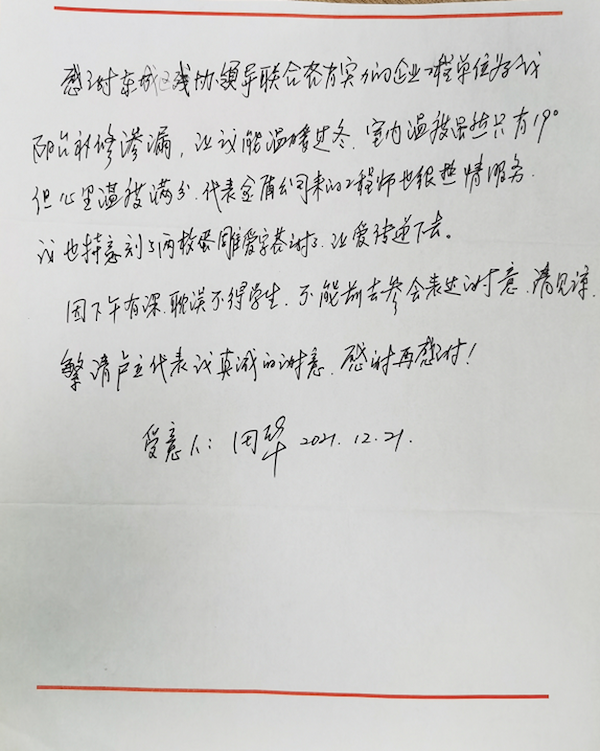 感谢东城区残协领导联合各有实力的企业工程单位为我
阳台补修渗漏，让我能温暖过冬，室内温度虽然只有19°
但心里温度满分，代表金盾公司来的工程师也很热情服务．
我也特意刻了两枚蛋雕爱字答谢了，让爱传递下去。
因下午有课，耽误不得学生，不能前去参会表达谢意，请见谅，
繁请卢主代表我真诚的谢意，感谢再感谢！
受意人：田 2021.12.21.